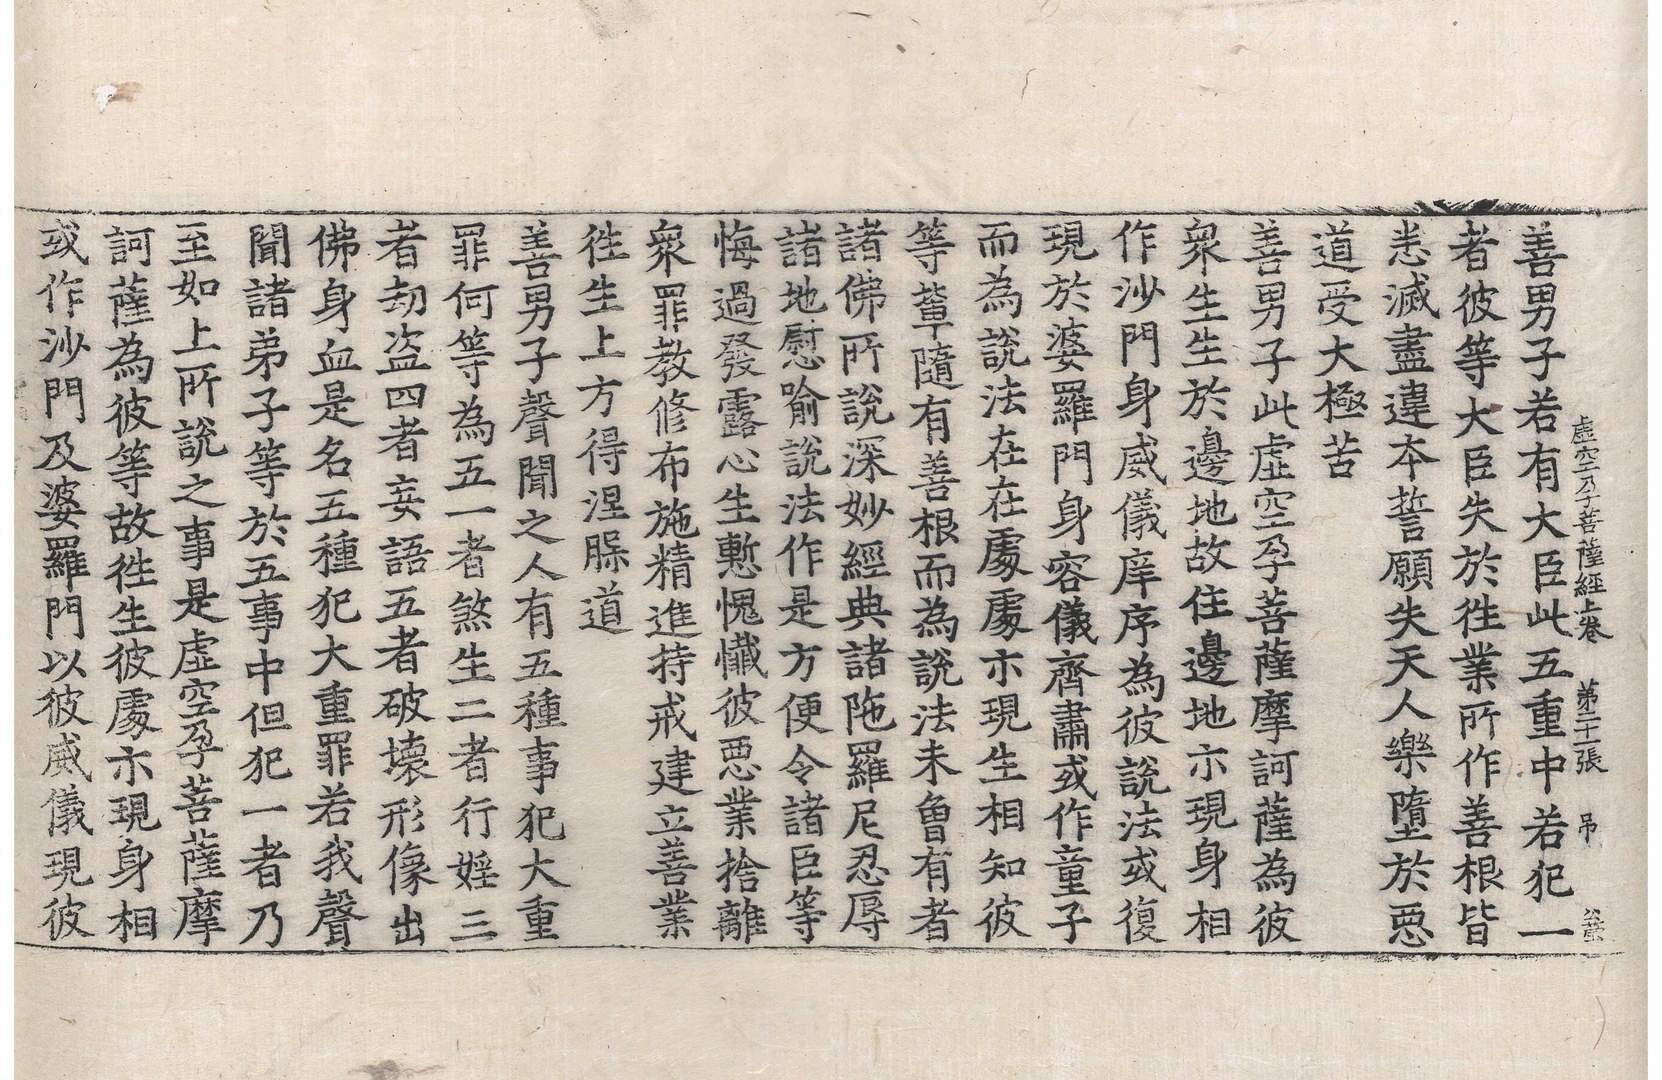 虛空孕菩薩經上卷 第二十張 吊
善男子若有大臣此五重中若犯一
者彼等大臣失於徃業所作善根皆
悉滅盡違本誓願失天人樂墮於惡
道受大極苦
善男子此虛空孕菩薩摩訶薩為彼
衆生生於邊地故住邊地亦現身相
作沙門身威儀庠序為彼說法或復
現於婆羅門身容儀齊肅或作童子
而為說法在在處處亦現生相知彼
等輩隨有善根而為說法未曾有者
諸佛所說深妙經典諸陁羅尼忍辱
諸地慰喻說法作是方便令諸臣等
悔過發露心生慙愧懺彼惡業捨離
衆罪教修布施精進持戒建立善業
徃生上方得涅槃道
善男子聲聞之人有五種事犯大重
罪何等為五一者煞生二者行婬三
者劫盗四者妄語五者破壞形像出
佛身血是名五種犯大重罪若我聲
聞諸弟子等於五事中但犯一者乃
至如上所說之事是虛空孕菩薩摩
訶薩為彼等故徃生彼處亦現身相
或作沙門及婆羅門以彼威儀現彼